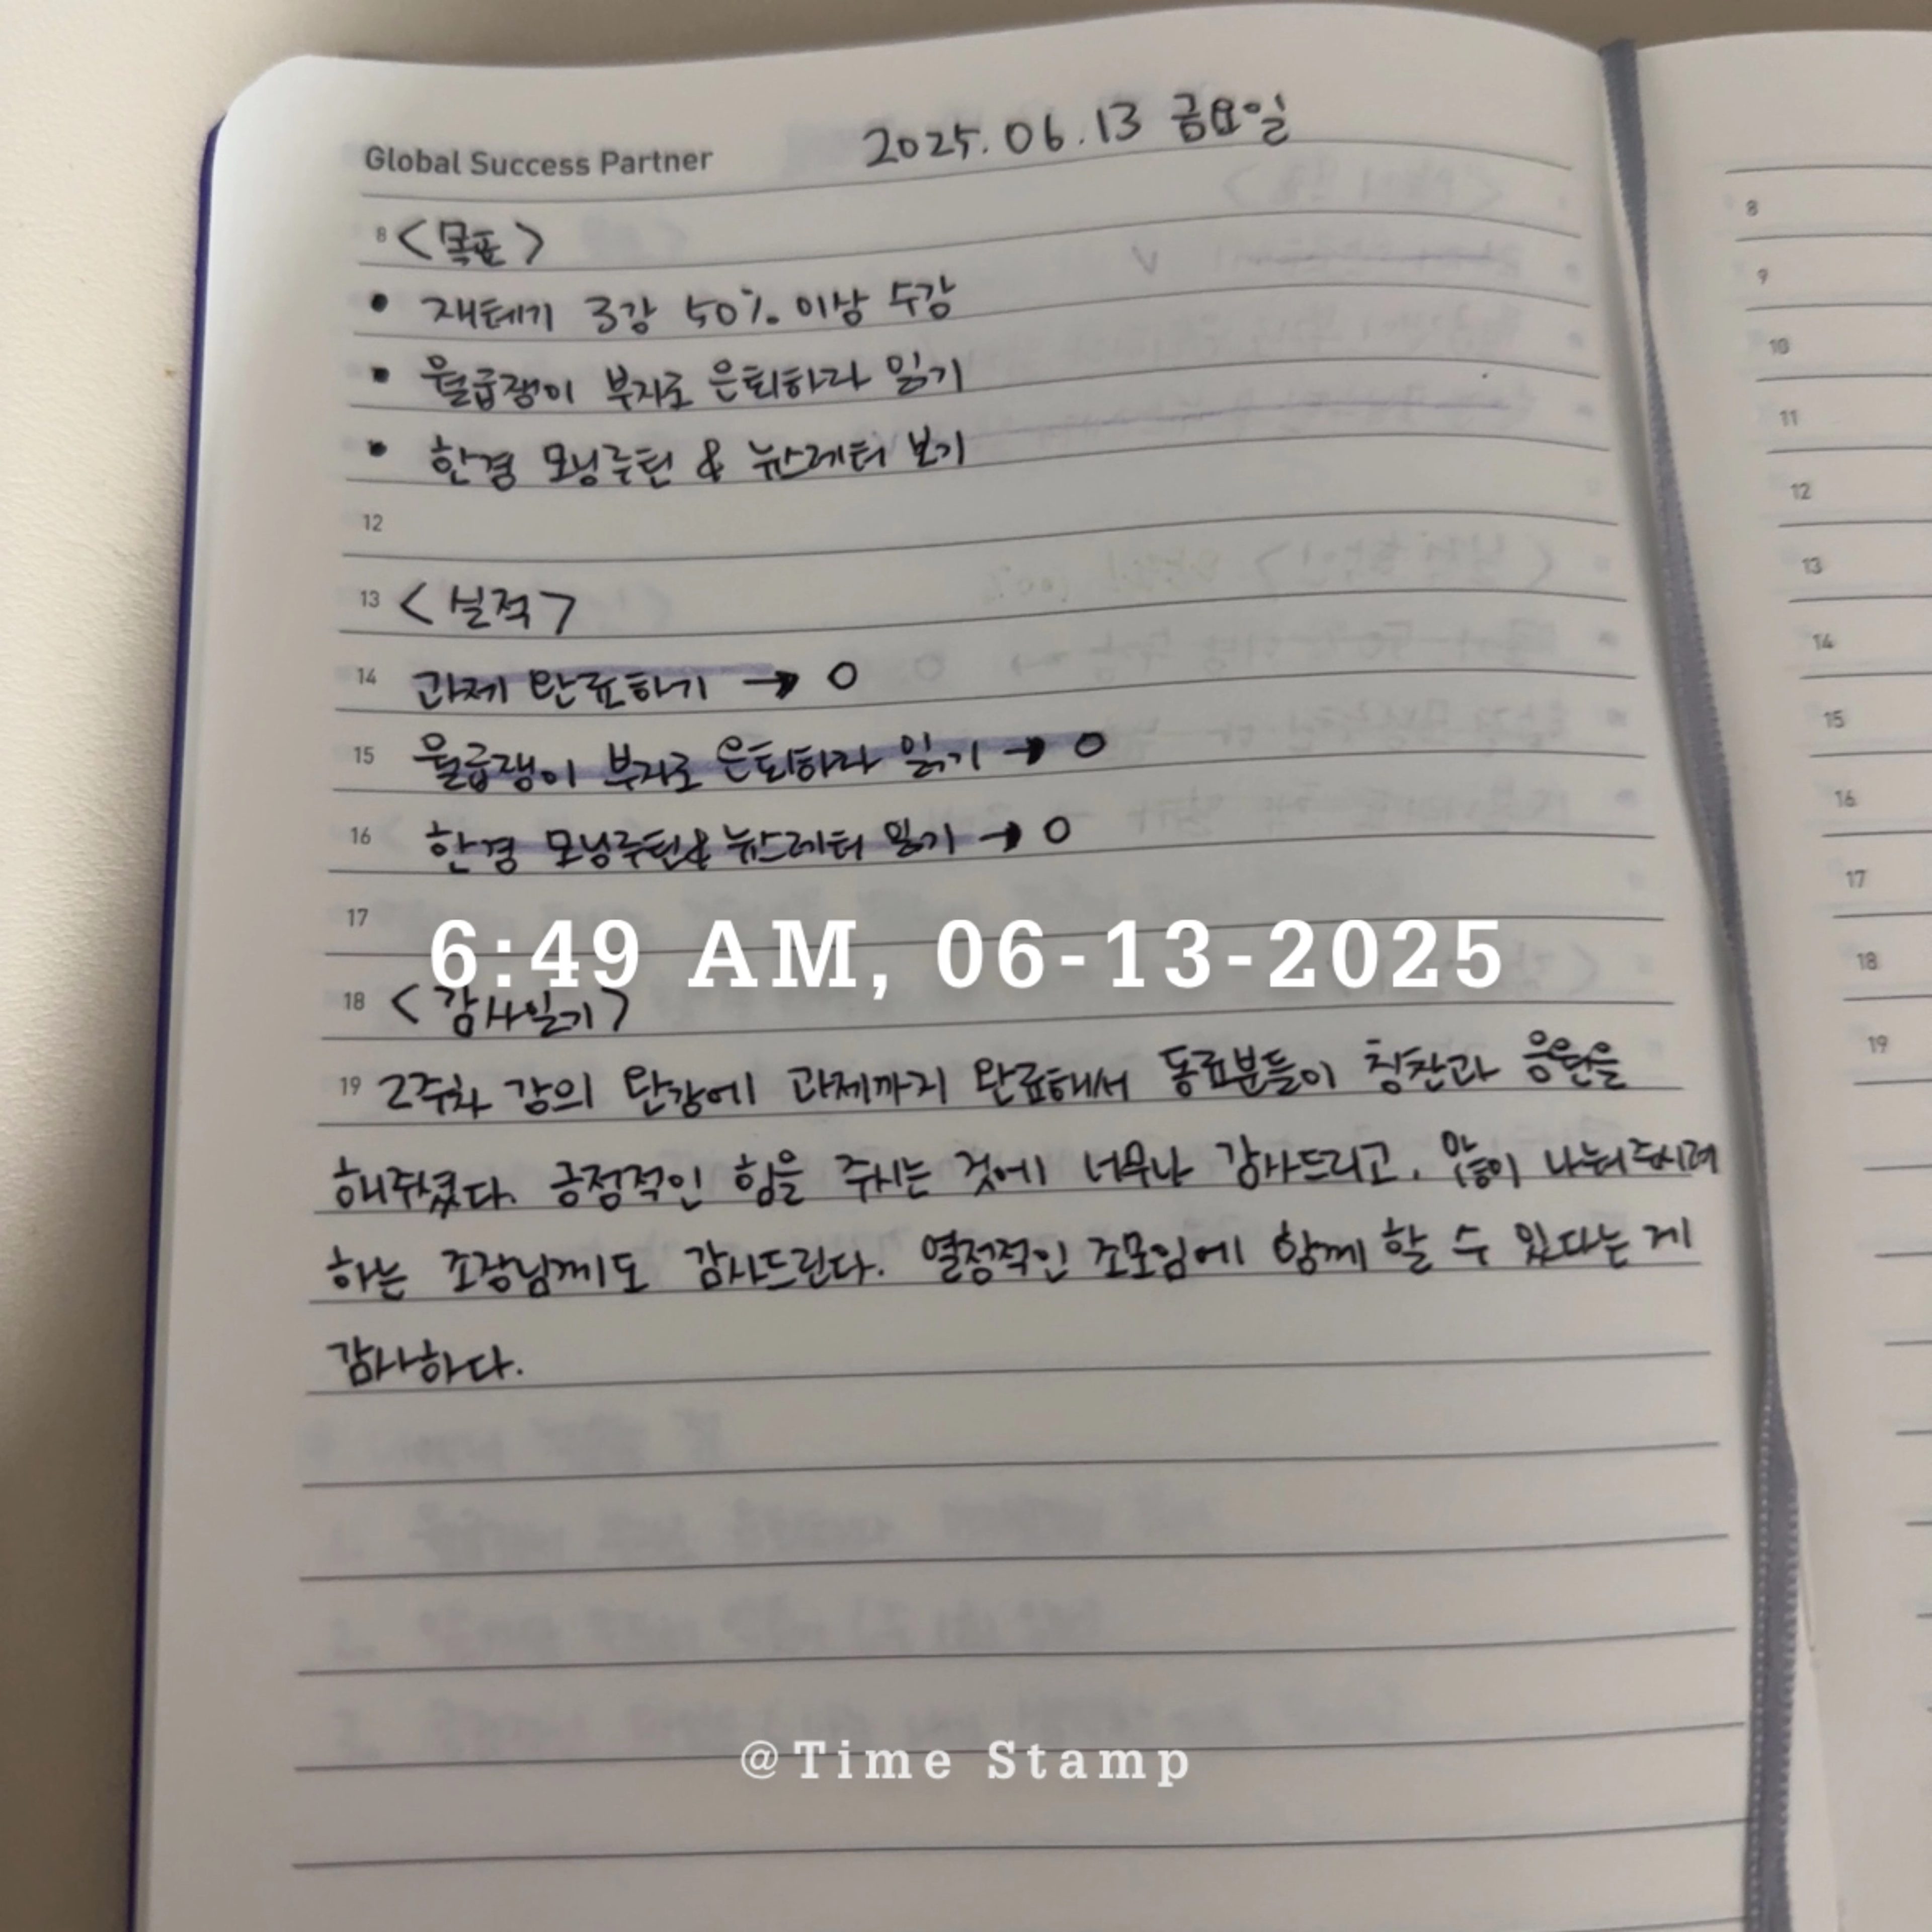 Global Success Partner
2025.06.13 금요일
8 <목표>
• 재테기 3강 50% 이상 수강
• 월급쟁이 부자로 은퇴하라 읽기
• 한경 모닝루틴 & 뉴스레터 보기
12
13 <실적>
14 과제 완료하기 → O
15 월급쟁이 부자로 은퇴하라 읽기 → O
16 한경 모닝루틴 & 뉴스레터 읽기 → O
17
6:49 AM, 06-13-2025
18 <감사일기>
19 2주차 강의 완강에 과제까지 완료해서 동료분들이 칭찬과 응원을
해주셨다. 긍정적인 힘을 주시는 것에 너무나 감사드리고, 나눠주시려
하는 조장님께도 감사드린다. 열정적인 조모임에 함께 할 수 있다는 게
감사하다.
@Time Stamp
8
9
10
11
12
13
14
15
16
17
18
19